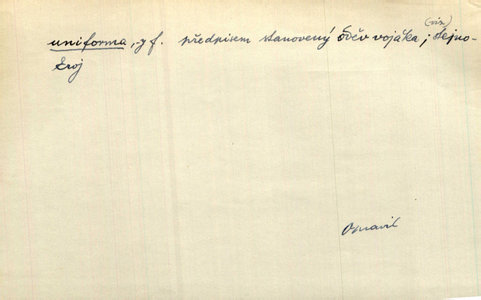 uniforma, -y f. předpisem stanovený oděv vojáka; (viz) stejno-
kroj
Opravil